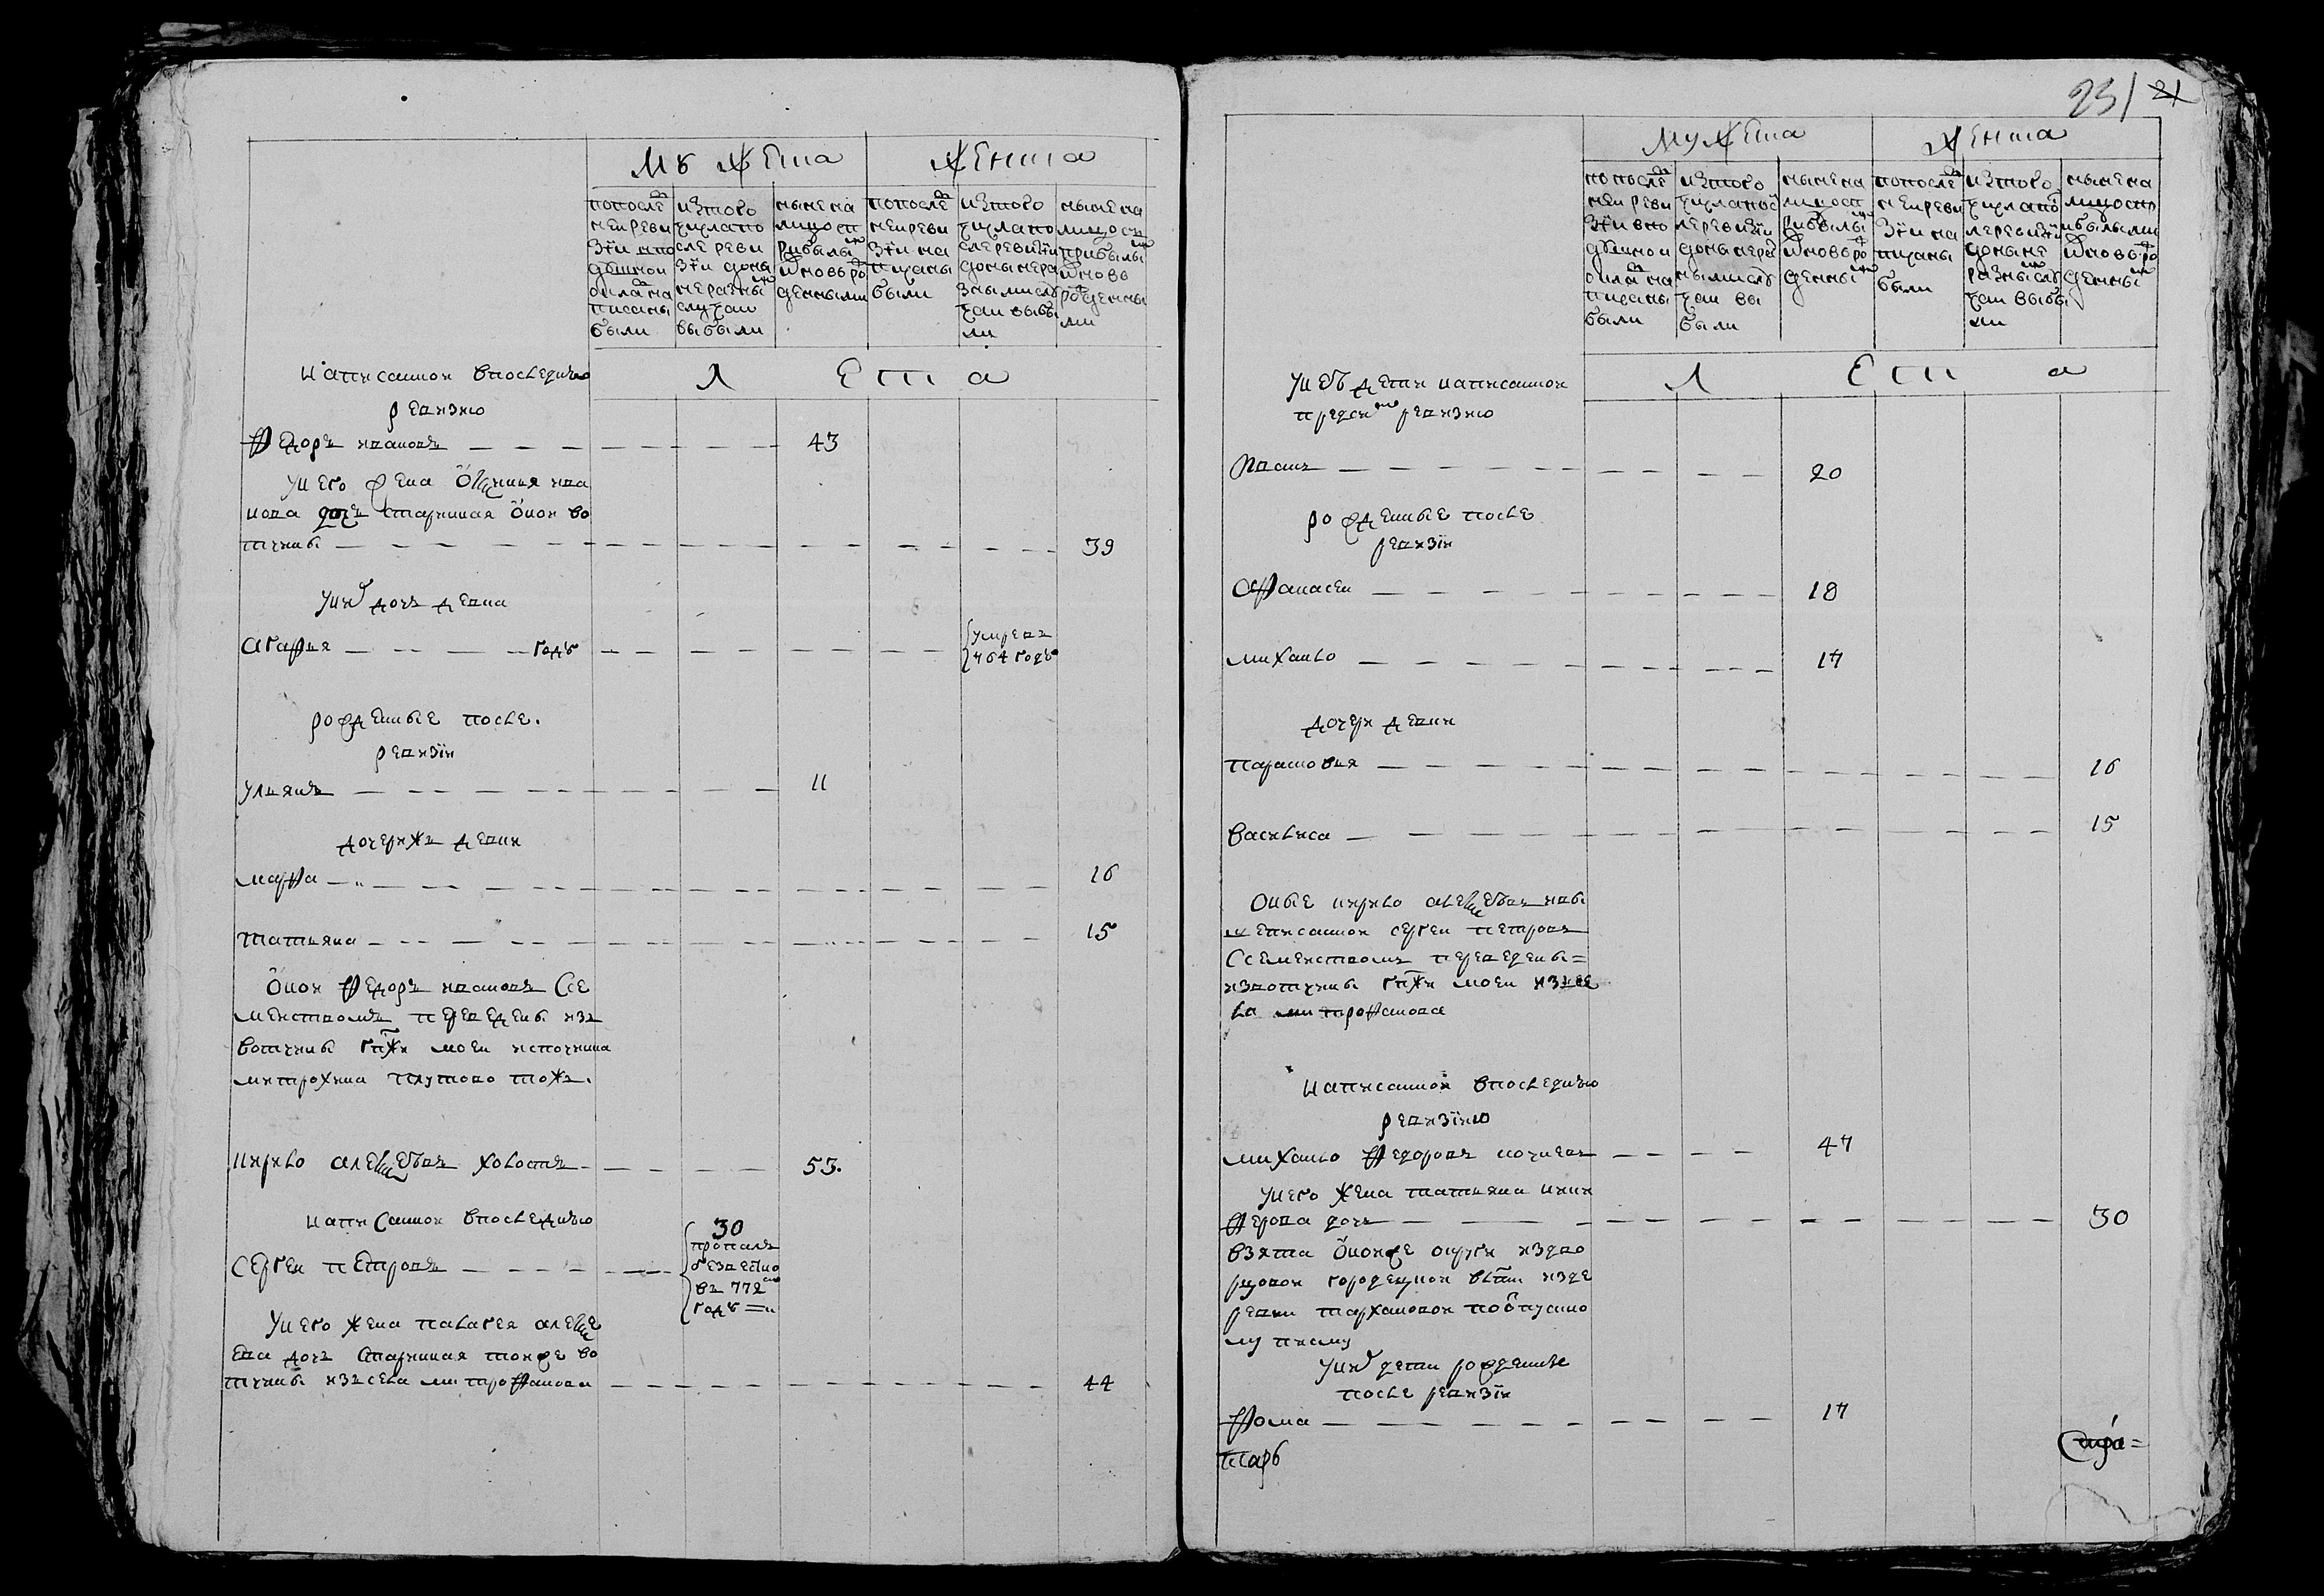 мужеска
женска
по послѣд
ней реви
зіи в по
душной
оклад на
писаны
были
из того
числа по
сле реви
зіи до ны
не разны
случаи
выбыли
ныне на
лицо с
прибылы
и вновь ро
жденными
по послѣд
ней реви
зіи на
писаны
были
из того
числа по
сле ревизіи
до ныне ра
зными слу
чаи выбы
ли
ныне на
лицо с
прибылы
и вновь
рожденны
ми
лета
написанной в последнюю
ревизию
Федоръ ивановъ 43
у него жена
нова дочь старинная оной во
тчины 39
у них дочь девка
агафья году умре въ 764 году
рожденные после
ревизіи
ульянъ 11
дочери жъ девки
марфа 16
татьяна 15
оной Федоръ ивановъ с се
мействомъ переведены изъ
вотчины гпжи моей
митрохина плутово тожъ
кирило алексѣевъ холостъ 53
написанной в последнюю
Сергей петровъ 30 пропалъ
безвестно
въ 772
году
у него жена палагея алексе
ева дочь старинная той же во
тчины изъ села митрофанова 44
23 21
мужеска
женска
по послѣд
ней реви
зіи в по
душной
оклад на
писаны
были
из того
числа пос
ле ревизіи
до ныне раз
ными слу
чаи вы
были
ныне на
лицо с
прибылы
и вновь ро
жденны
по послѣд
ней реви
зіи на
писаны
были
из того
числа пос
ле ревизіи
до ныне
разны слу
чаи выбы
ли
ныне на
лицо с пр
ибылыми
и вновь ро
жденны
лета
у них дети написанной
пред сию ревизию
Иванъ 20
рожденные после
ревизіи
Афанасей 18
михайло 17
дочери девки
парасковья 16
василиса 15
оные кирило алексѣевъ и вы
шеписанной сергей петровъ
с семействомъ переведены
из вотчины гпжи моей изъ се
ла митрофанова
написанной в последнюю
ревизіию
михайло Федоровъ 47
у него жена татьяна ники
ферова дочь 30
взята оной же округи из дво
рцовой городецкой влсти из де
ревни тархановой по отпускно
му писму
у них дети рожденные
после ревизіи
Фома 17